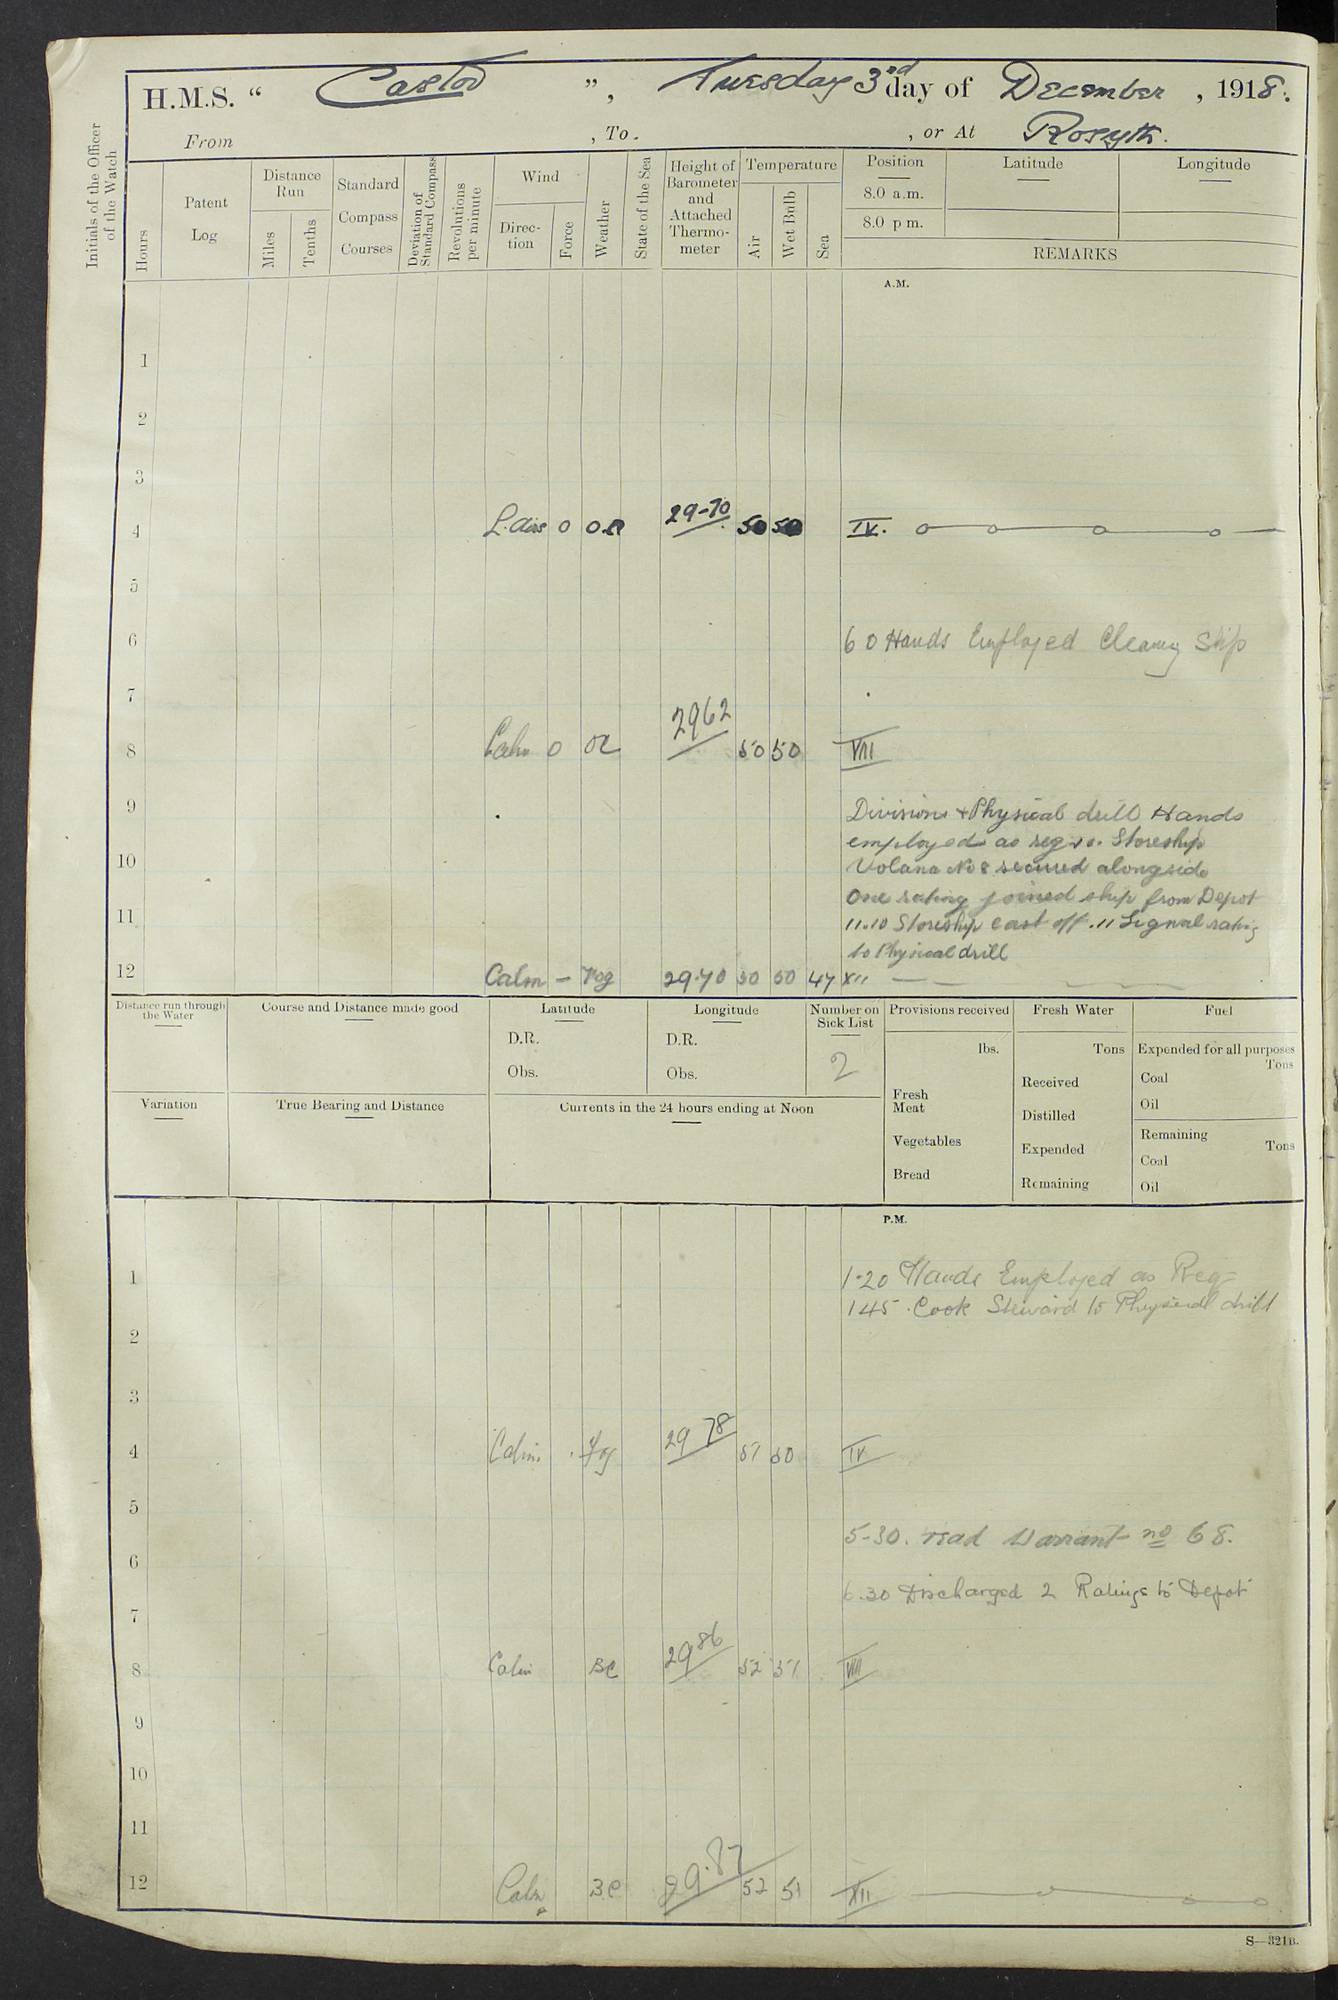 H.M.S. “ Castor ”, Tuesday 3rd day of December, 1918.
From , To. , or At Rosyth.
Initials of the Officer of the Watch
Hours
Patent Log
Distance Run
Miles
Tenths
Standard Compass Courses
Deviation of Standard Compass
Revolutions per minute
Wind
Direction
Force
Weather
State of the Sea
Height of Barometer and Attached Thermometer
Temperature
Air
Wet Bulb
Sea
Position
8.0 a.m.
8.0 p m.
Latitude
Longitude
REMARKS
A.M.
1
2
3
4 L. airs 0 29-70 50 50 IV.
5
6 6 0 Hands Employed Cleang Ship
7
8 Calm 0 2962 50 50 VIII
9 Divisions + Physical drill Hands
employed as reqre. Storeship
10 Volana No 8 secured alongside
One rating joined ship from Depot
11 11.10 Storeship cast off. 11 Signal rating
to Physical drill
12 Calm – Fog 29.70 50 50 47 XII
Distance run through the Water
Course and Distance made good
Latitude
D.R.
Obs.
Longitude
D.R.
Obs.
Number on Sick List
2
Provisions received
lbs.
Fresh Meat
Vegetables
Bread
Fresh Water
Tons
Received
Distilled
Expended
Remaining
Fuel
Expended for all purposes
Tons
Coal
Oil
Remaining
Tons
Coal
Oil
Variation
True Bearing and Distance
Currents in the 24 hours ending at Noon
P.M.
1 1·20 Hands Employed as Req
145. Cook Steward to Physical drill
2
3
4 Calm Fog 29 78 51 50 IV
5
5-30. read Warrant no 68.
6
6.30 Discharged 2 Ratings to Depot
7
8 Calm BC 2986 52 51 VIII
9
10
11
12 Calm B.C 29.87 52 51 XII
S—321B.